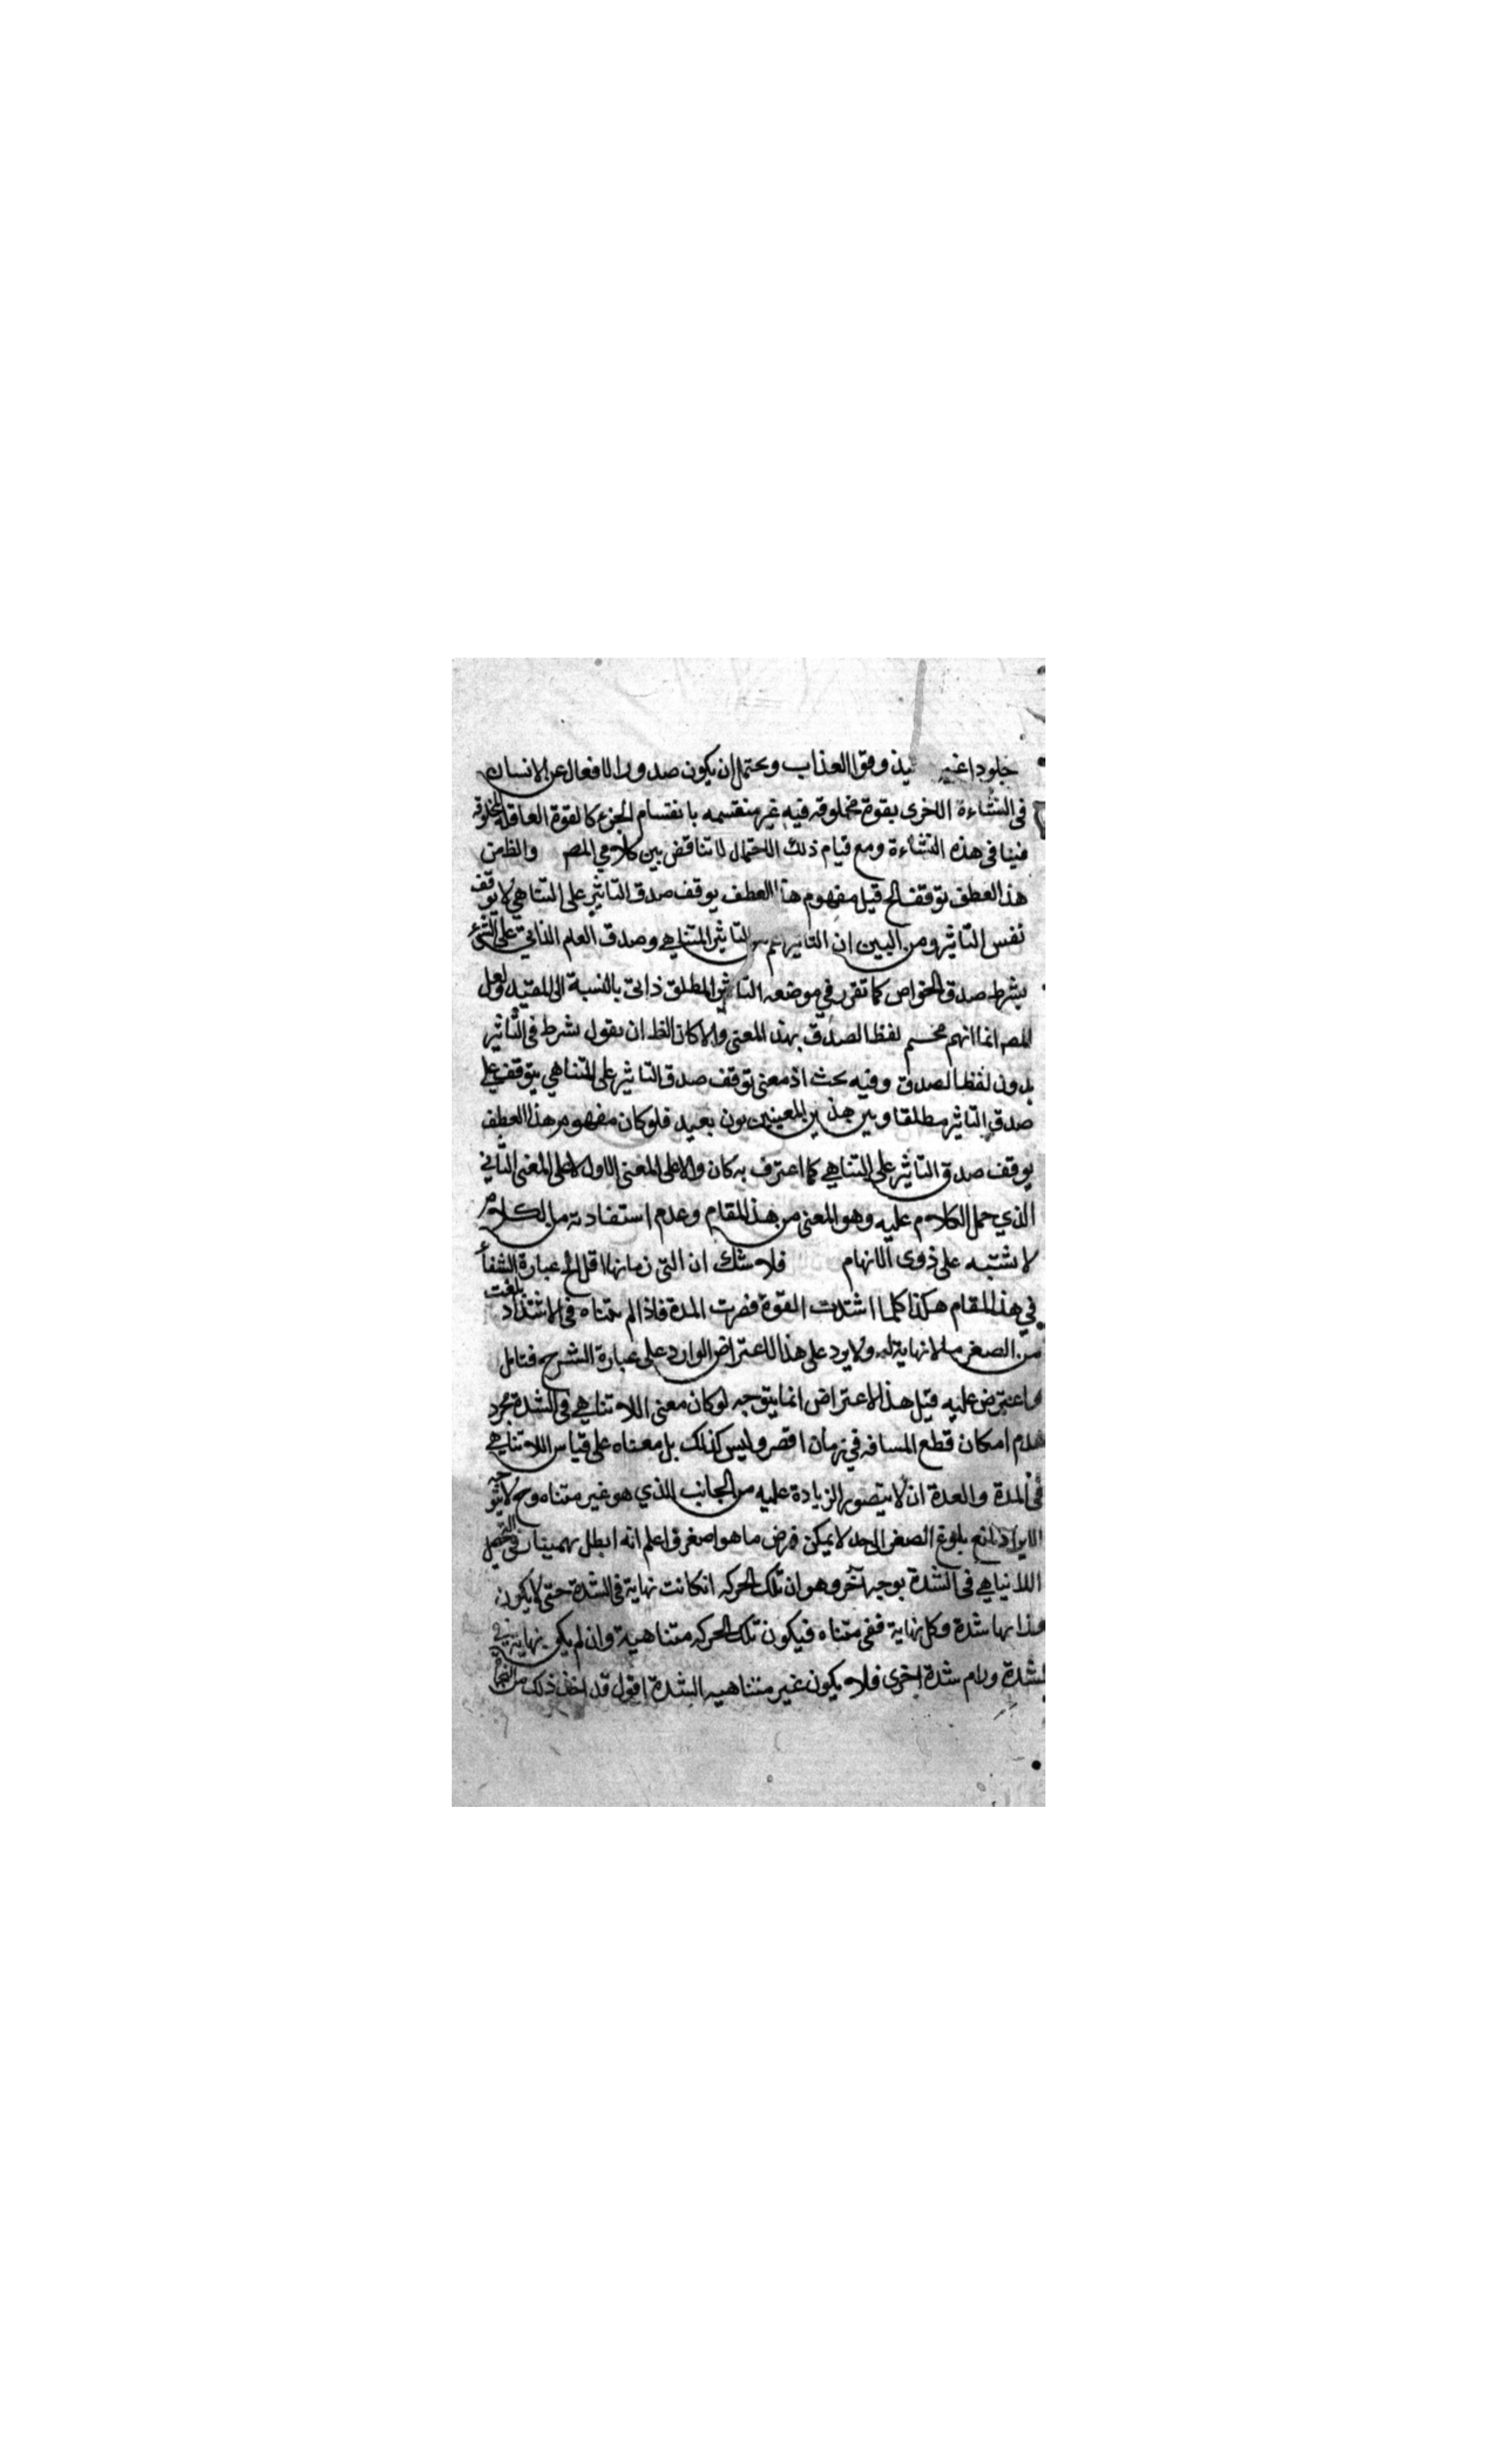 جلودا غير يذوقوا العذاب ويحتمل ان يكون صدور الافعال عن الانسان
فى النشاءة الاخرى بقوة مخلوقه فيه غير منقسمه بانقسام الجزء كالقوة العاقلة المخلوقه
فينا فى هذه النشاءة ومع قيام ذلك الاحتمال لا تناقض بين كلامي المص والظ من
هذا العطف توقف الخ قيل مفهوم هذا العطف يوقف صدق التاثير على التناهي لا توقف
نفس التاثير ومن البين ان التاثير اعم من التاثير المتناهي وصدق العام الذاتي على الشئ
بشرط صدق الخواص كما تقرر في موضعه التاثير المطلق ذاتى بالنسبة الى المقيد ولعل
المص انما اقحم لفظ الصدق بهذا المعنى والا كان الظ ان يقول بشرط فى التاثير
بدون لفظ الصدق وفيه بحث اذ معنى توقف صدق التاثير على التناهي يتوقف على
صدق التاثير مطلقا وبين هذين المعنيين بون بعيد فلو كان مفهوم هذا العطف
يوقف صدق التاثير على التناهي كما اعترف به كان والا على المعنى الاول لا على المعنى الثاني
الذي حمل الكلام عليه وهو المعنى من هذا المقام وعدم استفادته من الكلام
لا يشتبه على ذوى الافهام فلا شك ان التى زمانها اقل الخ عبارة الشفأ
في هذا المقام هكذا كلما اشتدت القوة قصرت المدة فاذا لم يتناه فى الاشتداد بلغت
من الصغر ما لا نهاية له ولا يرد على هذا الاعتراض الوارد على عبارة الشرح فتامل
واعترض عليه قيل هذا الاعتراض انما يتوجه لو كان معنى اللا تناهي فى الشدة مجرد
عدم امكان قطع المسافه في زمان اقصر وليس كذلك بل معناه على قياس اللا تناهي
فى المدة والعدة ان لا يتصور الزيادة عليه من الجانب الذي هو غير متناه وح لا يتوجه
الايراد بلوغ الصغر الى حد لا يمكن فرض ما هو اصغر واعلم انه ابطل بهمنيار فى التحصيل
اللا تناهي فى الشدة بوجه آخر وهو ان تلك الحركه ان كانت نهاية فى الشدة حتى لا يكون
شدة وكل نهاية ففى متناه فيكون تلك الحركه متناهية وان لم يكن نهاية فى
الشدة ورام شدة اخرى فلا يكون غير متناهيه الشدة اقول قد اخذ ذلك من